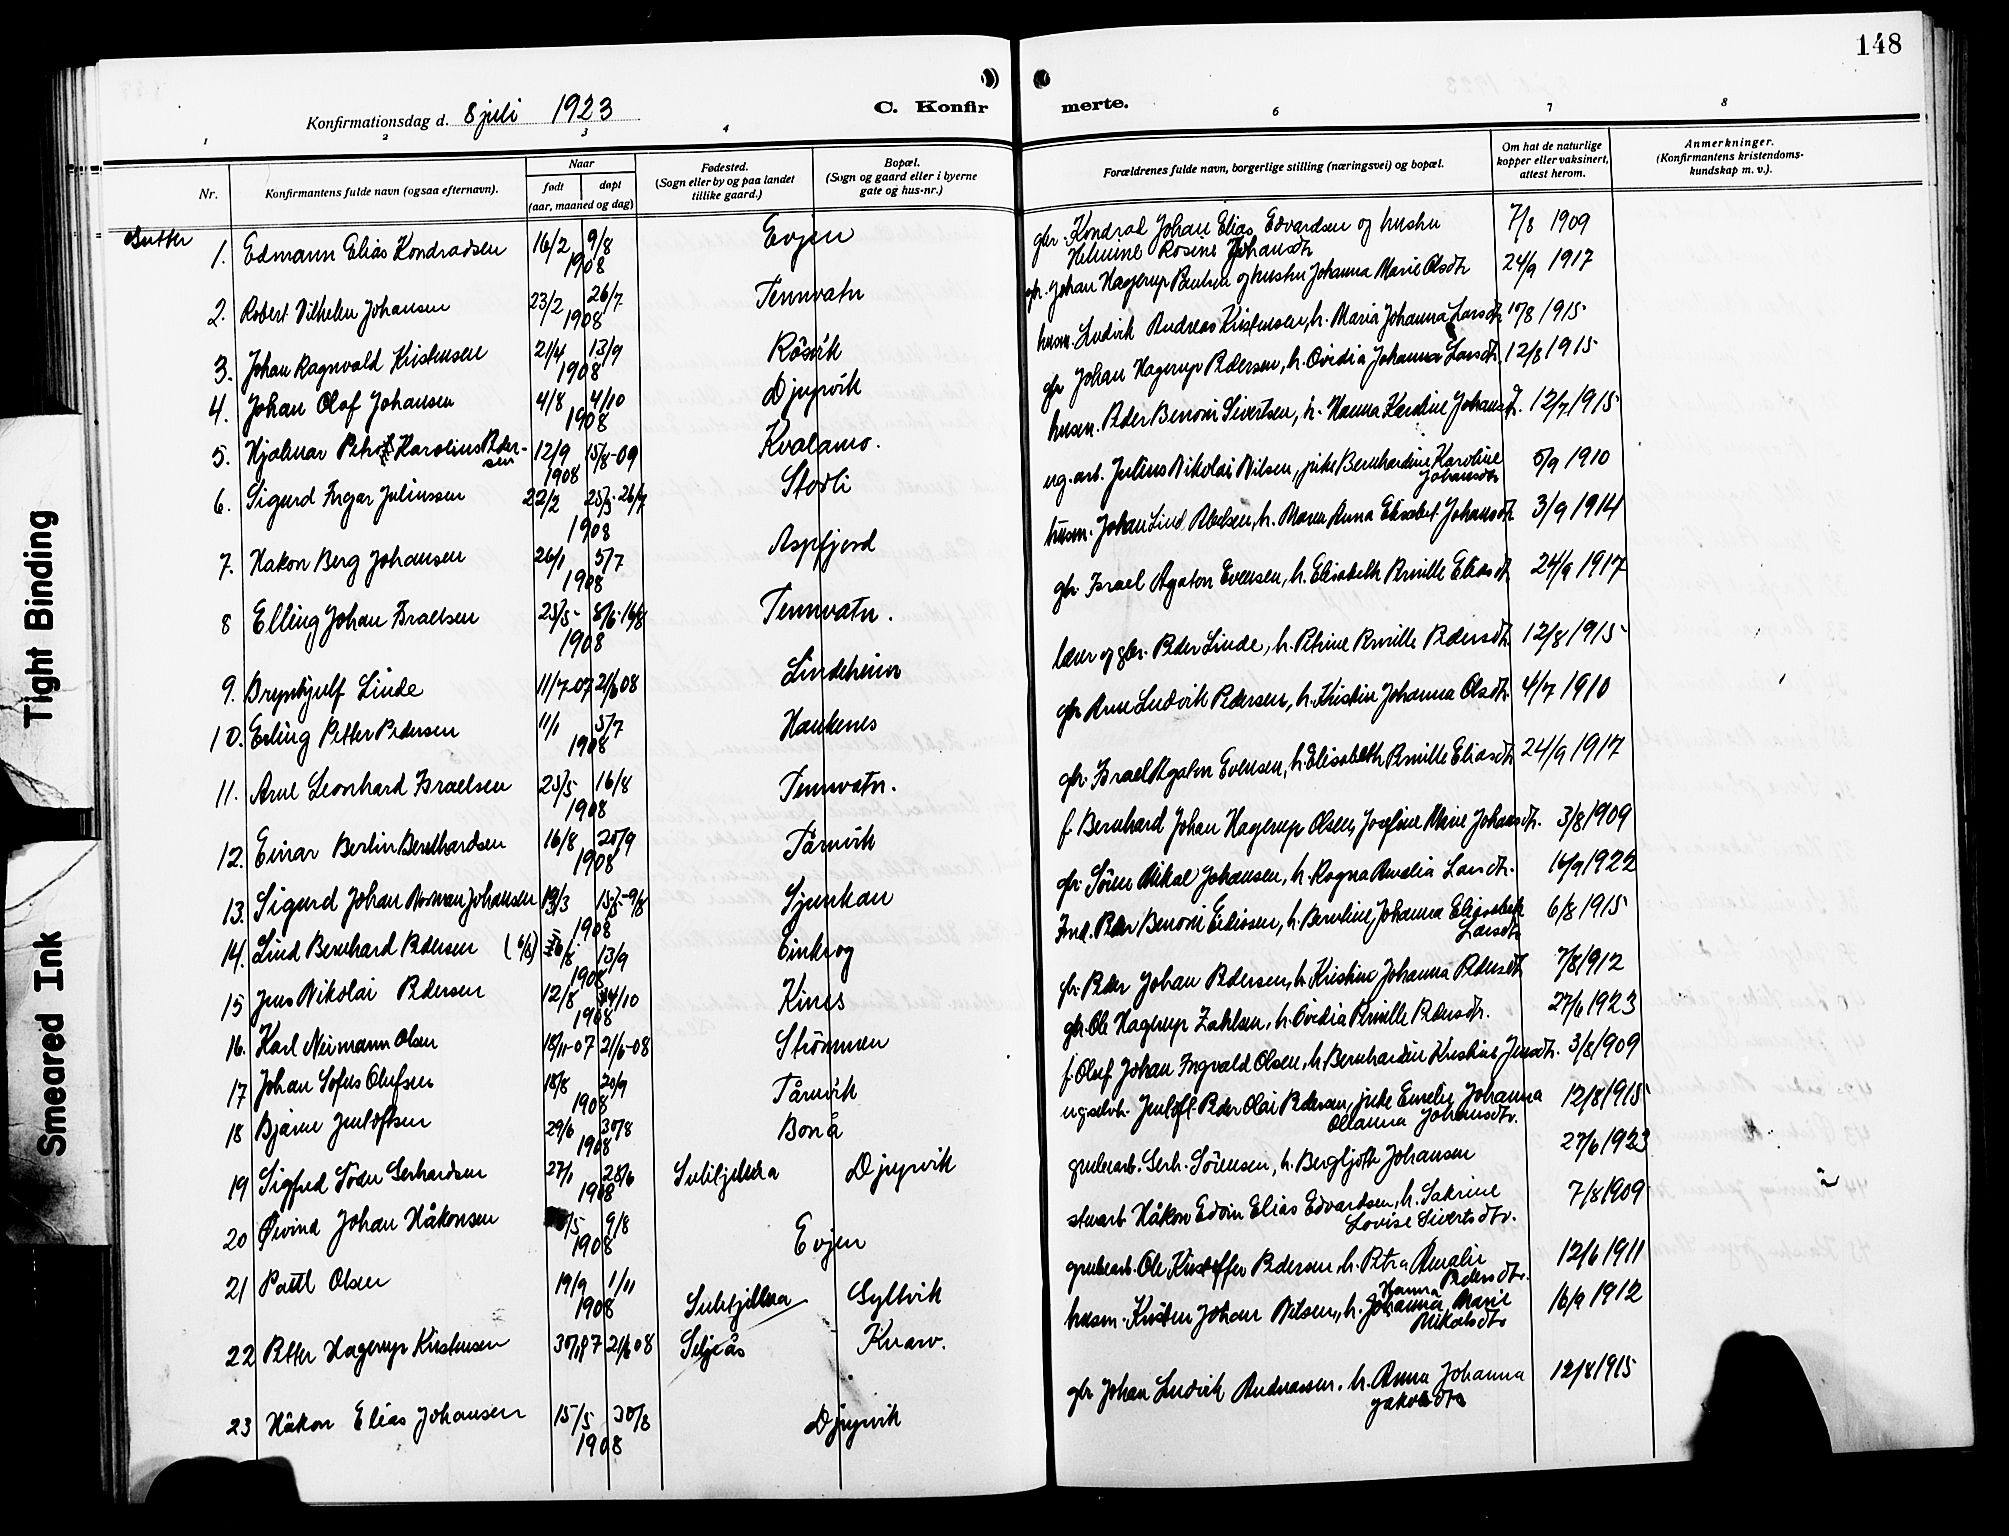 148
Konfirmationsdag d. 8 juli 1923
C. Konfirmerte.
1 2 3 4 6 7 8
Nr.
Konfirmantens fulde navn (ogsaa efternavn).
Naar
født døpt
(aar, maaned og dag)
Fødested.
(Sogn eller by og paa landet
tillike gaard.)
Bopæl.
(Sogn og gaard eller i byerne
gate og hus-nr.)
Forældrenes fulde navn, borgerlige stilling (næringsvei) og bopæl.
Om hat de naturlige
kopper eller vaksinert,
attest herom.
Anmerkninger.
(Konfirmantens kristendoms-
kundskap m. v.).
Gutter
1. Edmann Elias Kondradsen 16/2 9/8 1908 Evjen gbr. Kondrad Johan Elias Edvardsen og hustru 7/8 1909
Helmine Rosine Johansdtr
2. Robert Vilhelm Johansen 23/2 26/7 1908 Tennvatn gbr. Johan Hagerup Bentsen og hustru Johanna Marie Olsdtr 24/9 1917
3. Johan Ragnvald Kristensen 21/4 13/9 1908 Røsvik husm. Ludvik Andreas Kristensen, h. Maria Johanna Larsdtr 10/8 1915
4. Johan Olaf Johansen 4/8 4/10 1908 Djupvik gbr Johan Hagerup Pedersen, h. Ovidia Johanna Larsdtr. 12/8 1915
5. Hjalmar Petrof Karolius Pedersen 12/9 1908 15/8-09 Kvalamo. husm. Peder Benoni Sivertsen, h. Hanna Karoline Johansdt. 12/7 1915
6. Sigurd Ingar Juliussen 22/2 25/3-26/7 1908 Storli ug. arb. Julius Nikolai Nilsen, pike Bernhardine Karoline 5/9 1910
Johansdtr
7. Hakon Berg Johansen 26/1 5/7 1908 Aspfjord husm. Johan Lind Abelsen, h. Maren Anna Elisabet Johansdtr 3/9 1914
8 Elling Johan Israelsen 25/5- 8/6-16/8 1908 Tennvatn. gbr. Israel Agaton Evensen, h. Elisabeth Pernille Eliasdtr 24/9 1917
9. Brynhjulf Linde 11/7-07 21/6 08 Lindeheim lærer og gbr. Peder Linde, h. Petrine Pernille Pedersdtr. 12/8 1915
10. Erling Petter Pedersen 11/1 5/7 1908 Haukenes gbr Arne Ludvik Pedersen, h. Kristine Johanna Olsdtr. 4/7 1910
11. Arne Leonhard Israelsen 25/5 16/8 1908 Tennvatn. gbr. Israel Agaton Evensen, h. Elisabeth Pernille Eliasdtr 24/9 1917
12. Einar Berlin Bernhardsen 16/8 20/9 1908 Tårnvik f. Bernhard Johan Hagerup Olsen, Josefine Marie Johansdtr. 3/8 1909
13. Sigurd Johan Norman Johansen 19/3 15/5-9/8 1908 Sjunkan gbr. Sören Mikal Johansen, h. Ragna Amalia Larsdtr. 16/9 1922
14. Lind Bernhard Pedersen (6/8) 13/9 1908 Einkrog Ind. Peder Benoni Eidissen, h. Berntine Johanna Elisabeth 6/8 1915
Larsdtr
15 Jens Nikolai Pedersen 12/8 4/10 1908 Kines gbr. Peder Johan Pedersen, h. Kristine Johanna Pedersdtr 7/8 1912
16. Karl Neimann Olsen 18/11-07 21/6-08 Strømmen gbr. Ole Hagerup Zahlsen, h. Ovidia Pernille Pedersdtr. 27/6 1923
17 Johan Sofus Olufsen 18/8 20/9 1908 Tårnvik f. Oluf Johan Ingvald Olsen, h. Bernhardine Kristine Jensdtr. 3/8 1909
18 Bjarne Jentoftsen 29/6 30/8 1908 Bonå ug selvh. Jentoft Peder Olai Pedersen, pike Emelie Johanna 12/8 1915
Olianna Johansdtr.
19 Sigfred Toder Gerhardsen 27/1 28/6 1908 Sulitjelma Djupvik grubearb. Gerh. Sörensen, h. Bergljott Johansen 27/6 1923
20 Øivind Johan Håkonsen /5 9/8 1908 Evjen stenarb Håkon Edvin Elias Edvardsen, h. Sakrine 7/8 1909
Lovise Sivertsdtr.
21 Paul Olsen 19/9 1/11 1908 Sulitjelma Gyltvik grubearb. Ole Kristoffer Pedersen, h. Petra Amalie 12/6 1911
Pedersdtr.
22 Petter Hagerup Kristensen 30/ 07 21/6 08 Seljeås Knarv. husm. Kristen Johan Nilsen, h. Hanna Johanna Marie 16/9 1912
Nikolsdtr
23 Håkon Elias Johansen 15/5 30/8 1908 Djupvik gbr Johan Ludvik Andreassen, h. Anna Johanna 12/8 1915
Jakobsdtr
Tight Binding
Smeared Ink